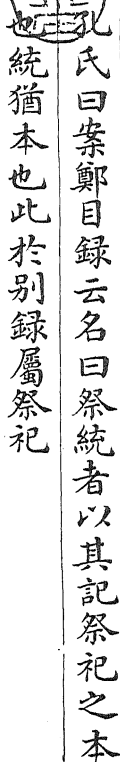 孔氏曰案鄭目録云名曰祭統者以其記祭祀之本
也統猶本也此於别録屬祭祀